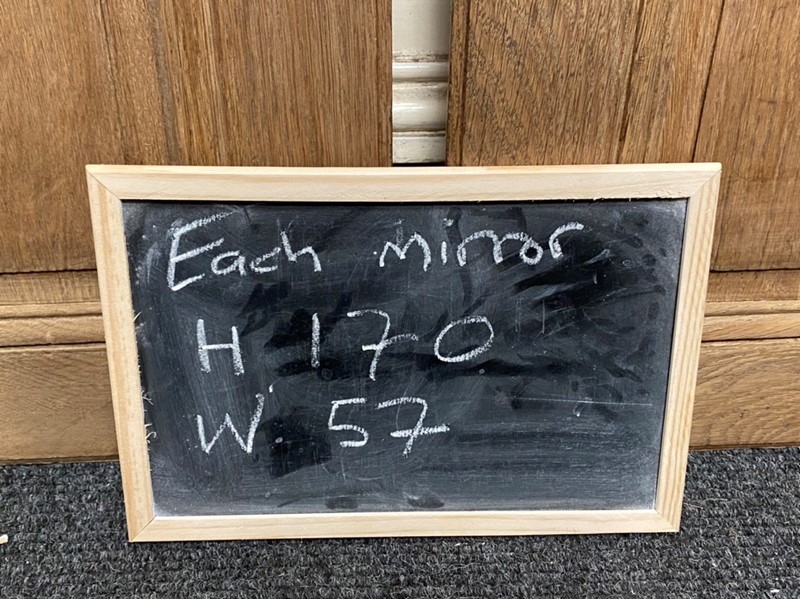 Each mirror
H 170
W 57